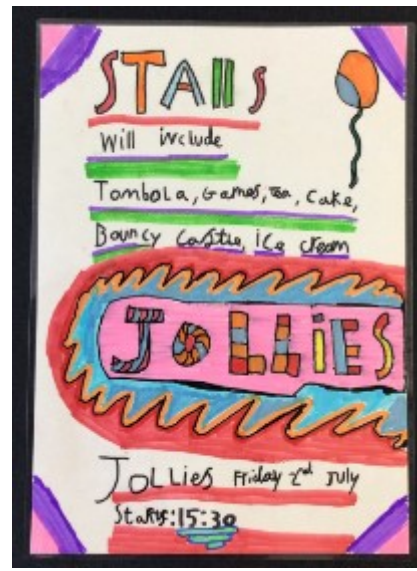 STAllS
Will include
TombolA, Games, Tea, Cake,
Bouncy Castle, ice cream
JOLLiES
JOLLieS Friday 2nd July
Starts:15:30